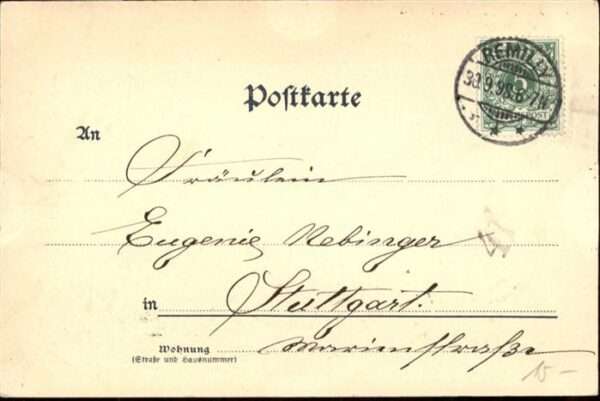 REMILLY
30.9.98.6-7N.
Postkarte
An
Fräulein
Eugenie Rebinger
in Stuttgart.
Wohnung Marienstraße
(Straße und Hausnummer)
15-